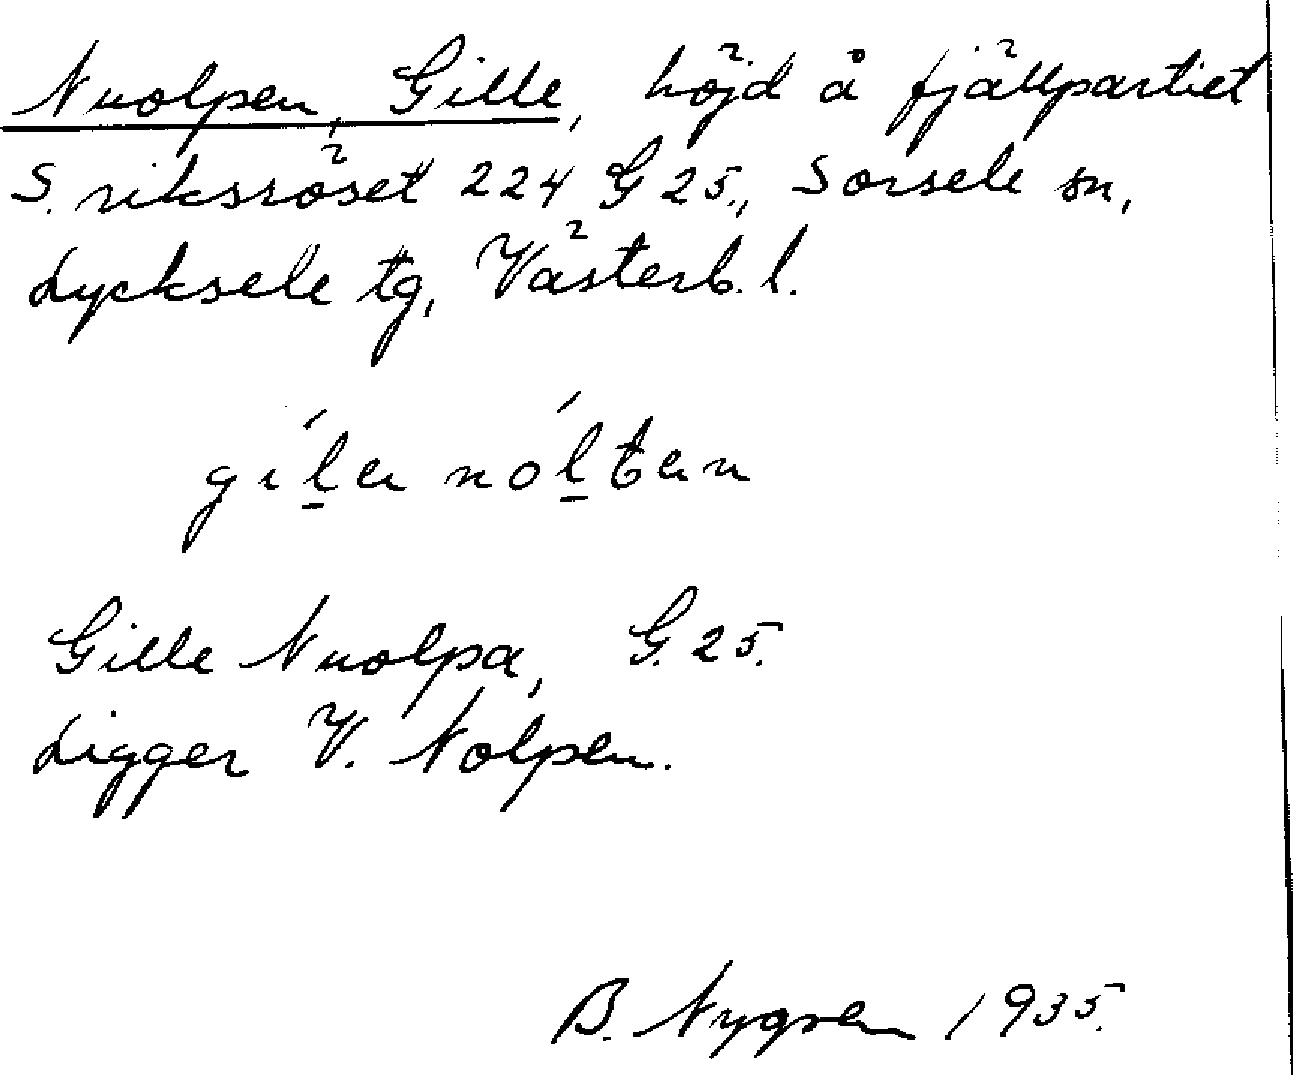 Nuolpen, Gille, höjd å fjällpartiet
S. riksröset 224 G 25., Sorsele sn,
Lycksele tg, Västerb. l.
Gille Nuolpa, G. 25.
Ligger V. Nolpen.
B. Nygren 1935.